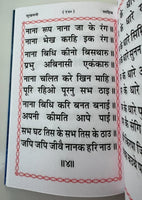 सुखमनी ( १७० ) साहिब
नाना रूप नाना जा के रंग ॥
नाना भेख करहि इक रंग ॥
नाना बिधि कीनो बिसथारु ॥
प्रभु अबिनासी एकंकारु ॥
नाना चलित करे खिन माहि ॥
पूरि रहिओ पूरनु सभ ठाइ ॥
नाना बिधि करि बनत बनाई ॥
अपनी कीमति आपे पाई ॥
सभ घट तिस के सभ तिस के ठाउ ॥
जपि जपि जीवै नानक हरि नाउ ॥
॥४॥